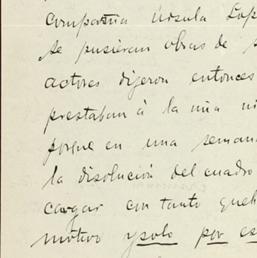 compañia Úrsula Lop
se pusieran obras de
actores dijeron entonces
prestaban á la
porque en una seman
la disolución del cuadro
cargar con tanto queh
motivo y solo por es